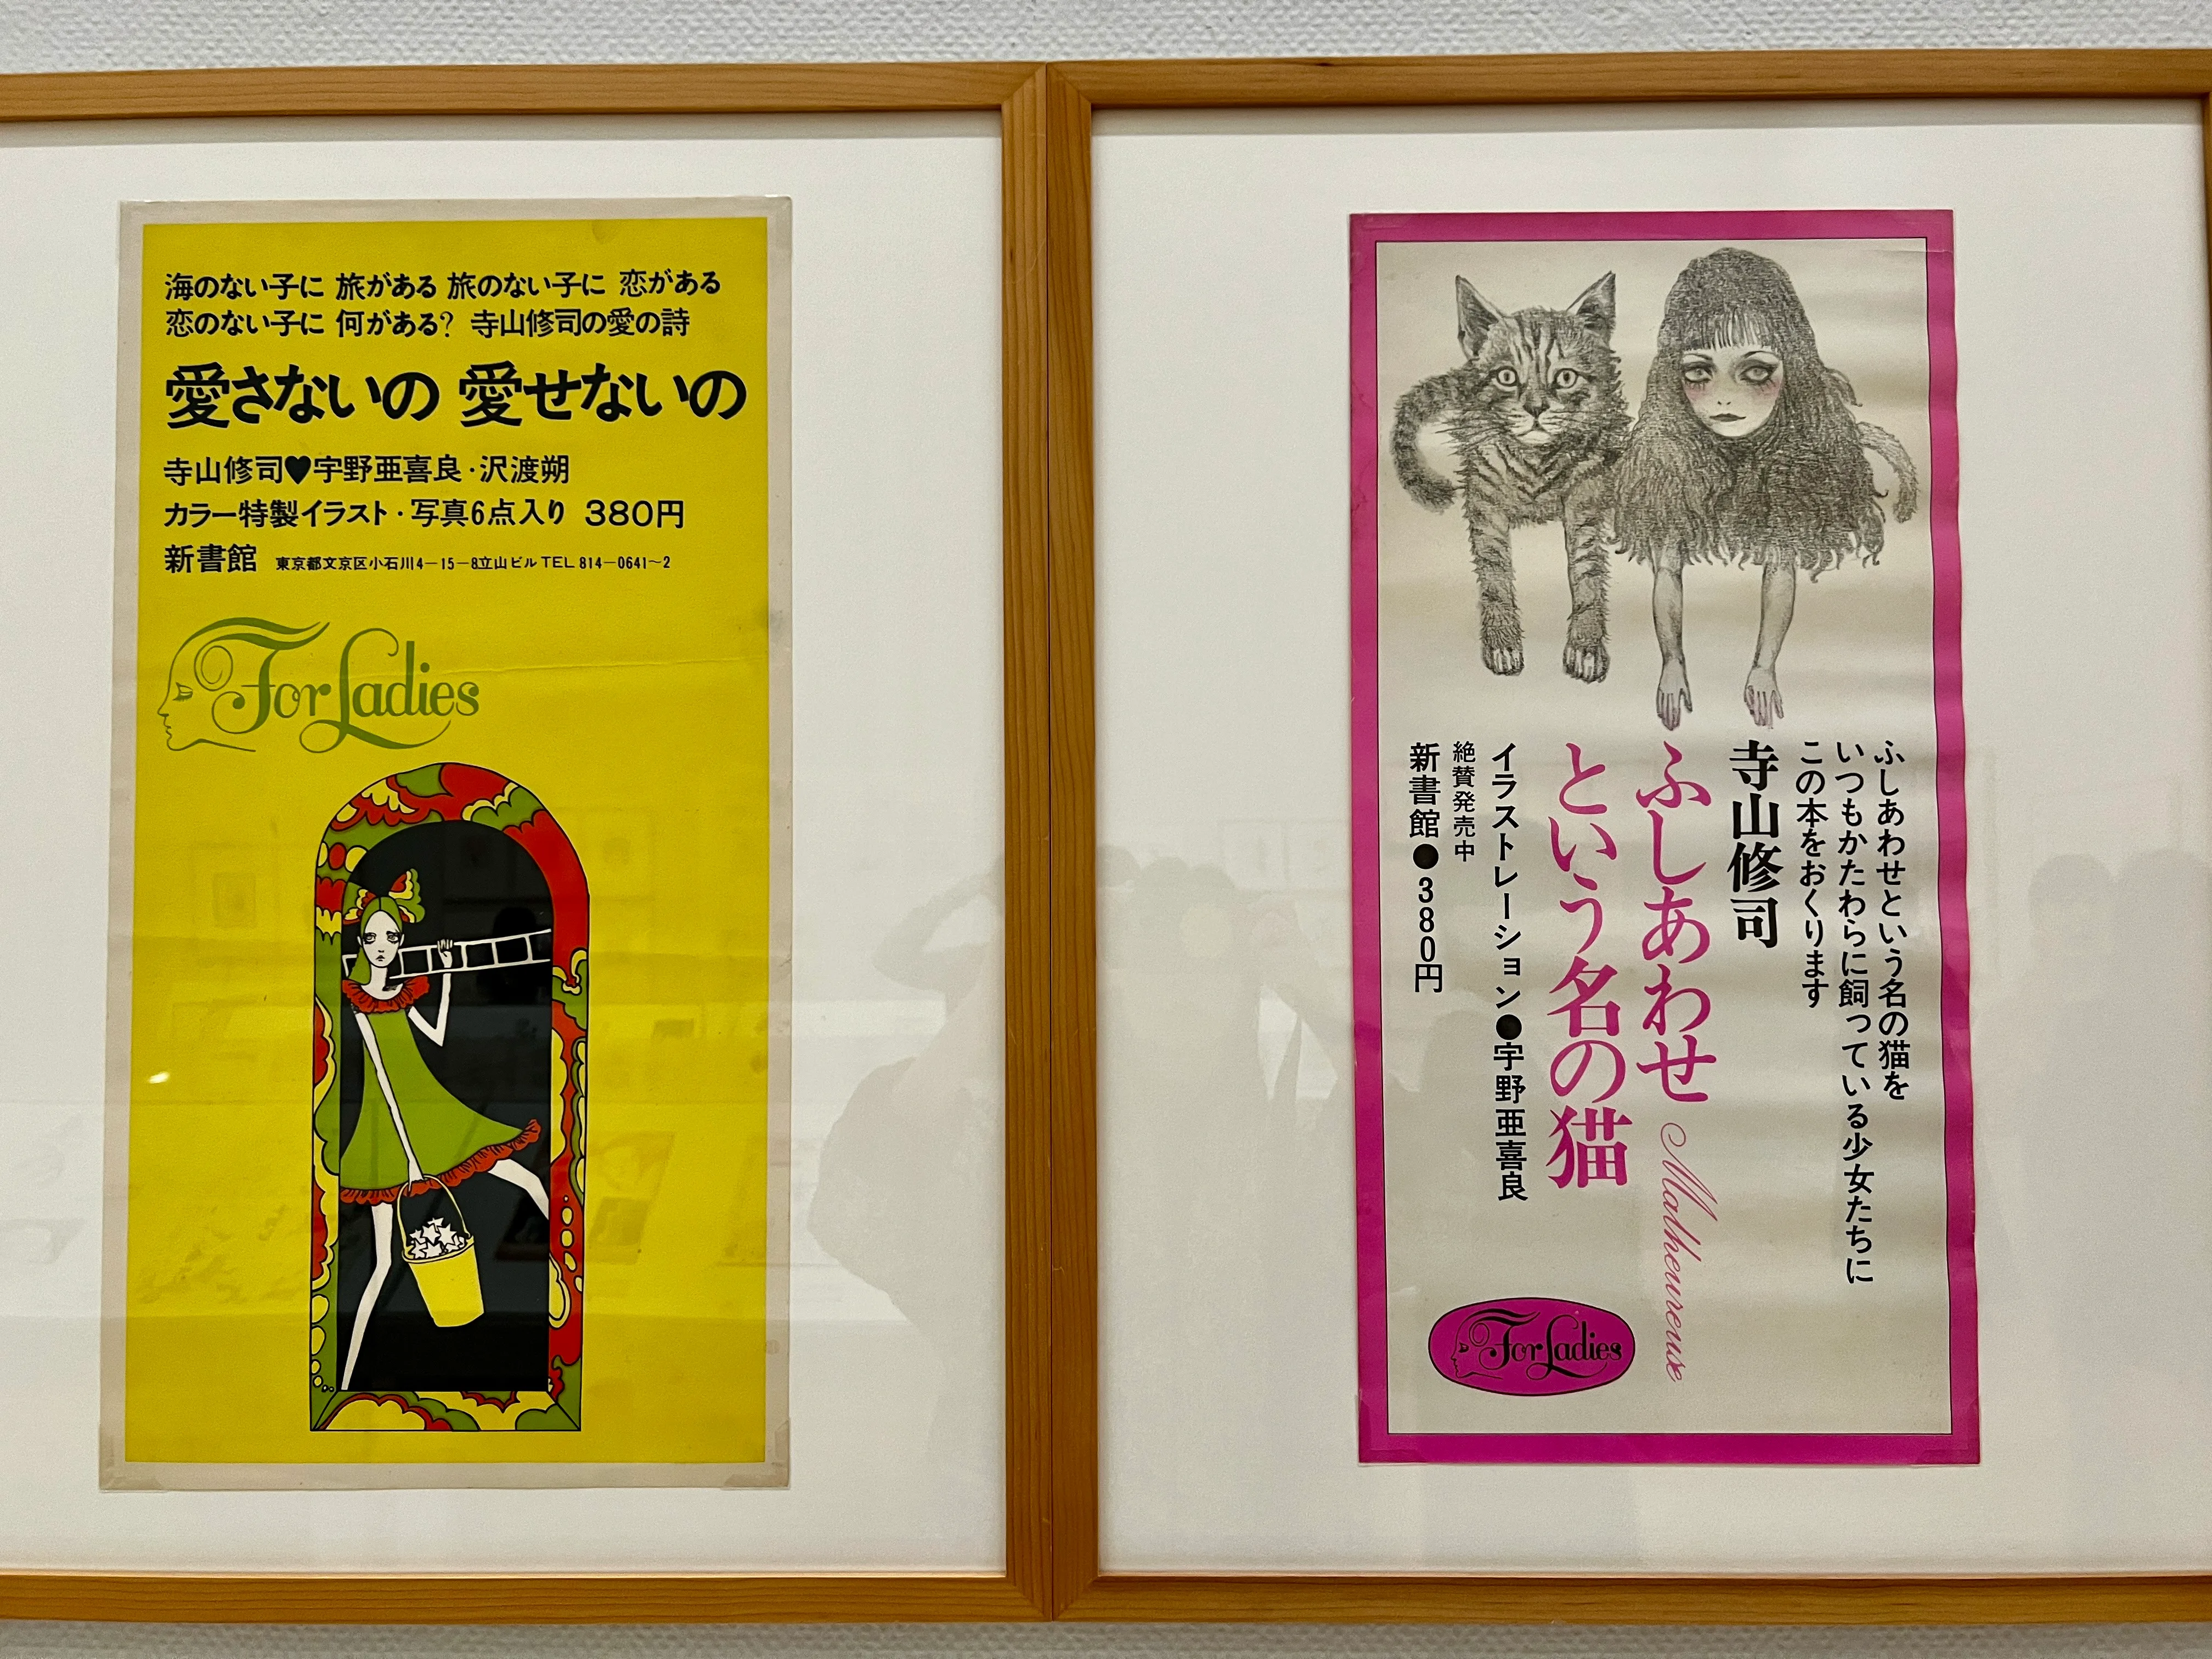 海のない子に 旅がある 旅のない子に 恋がある
恋のない子に 何がある? 寺山修司の愛の詩
愛さないの 愛せないの
寺山修司♥宇野亜喜良・沢渡朔
カラー特製イラスト・写真6点入り 380円
新書館 東京都文京区小石川4−15−8立山ビル TEL 814−0641〜2
For Ladies
ふしあわせという名の猫を
いつもかたわらに飼っている少女たちに
この本をおくります
寺山修司
ふしあわせ
という名の猫
Malheureuse
イラストレーション●宇野亜喜良
絶賛発売中
新書館●380円
For Ladies